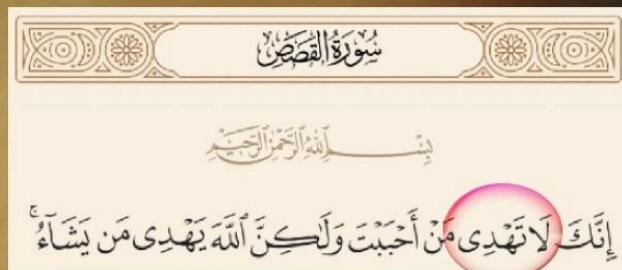 سُورَةُ القَصَصِ
بِسْمِ اللَّهِ الرَّحْمَٰنِ الرَّحِيمِ
إِنَّكَ لَا تَهْدِى مَنْ أَحْبَبْتَ وَلَٰكِنَّ ٱللَّهَ يَهْدِى مَن يَشَآءُ ۚ